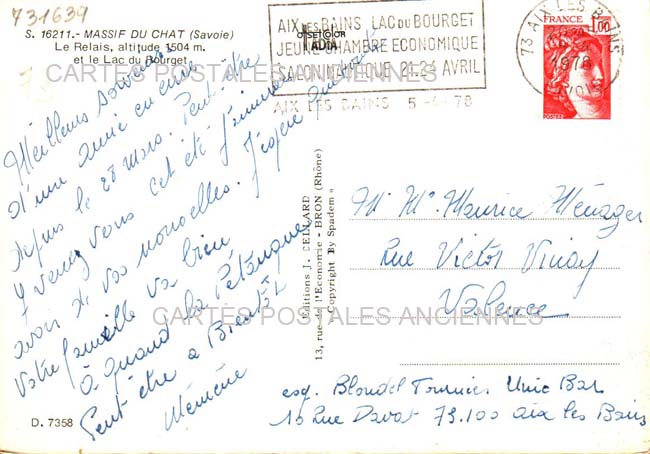 731639
S. 16211.- MASSIF DU CHAT (Savoie)
Le Relais, altitude 1504 m.
et le Lac du Bourget
OFFSETCOLOR
IADIA
AIX LES BAINS LAC DU BOURGET
JEUNE CHAMBRE ECONOMIQUE
SALON NAUTIQUE 21.24 AVRIL
AIX LES BAINS 5-4-78
73 AIX LES BAINS
1978
SAVOIE
FRANCE
1,00
POSTES
CARTES POSTALES ANCIENNES
Meilleurs souvenirs
d'une amie en cure
depuis le 28 mars. Peut-être
y venez vous cet été j'aimerais
avoir de vos nouvelles. J'espère que toute
votre famille va bien
à quand la Pétanque
Peut être a Bientôt
Mémène
Editions J. CELLARD
13, rue de l'Economie - BRON (Rhône)
Copyright By Spadem
Mr Me Maurice Ménager
Rue Victor Vinay
Valence
CARTES POSTALES ANCIENNES
exp. Blondel Tournier Unic Bar
10 Rue Davat 73.100 aix les Bains
D. 7358